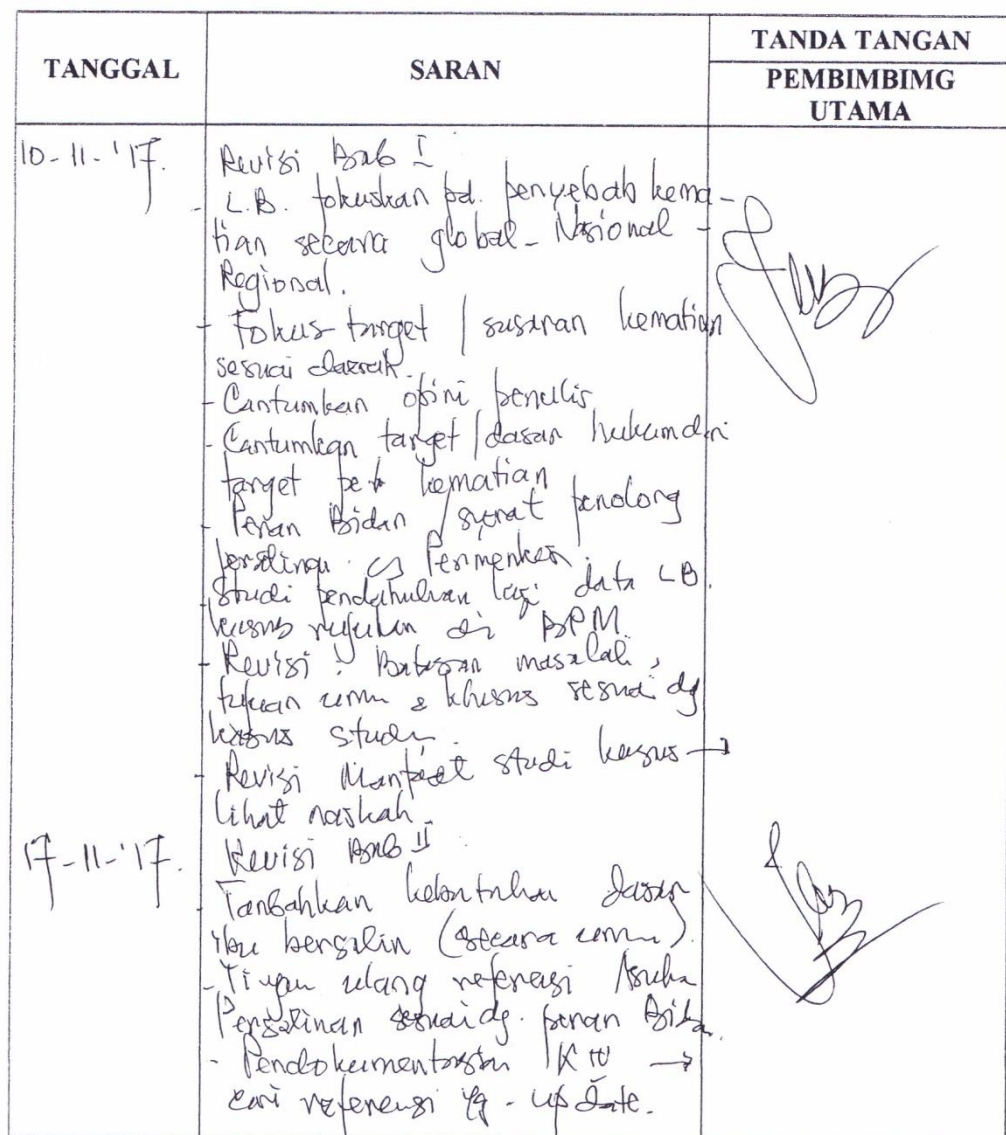 TANGGAL
SARAN
TANDA TANGAN
PEMBIMBIMG
UTAMA
10-11-'17.
Revisi Bab I
- L.B. fokuskan pd. penyebab kema-
tian secara global - Nasional -
Regional.
- Fokus target / sasaran kematian
sesuai daerah.
- Cantumkan opini penulis
- Cantumkan target / dasar hukum dari
target kematian
- Peran Bidan / syarat penolong
persalinan Permenkes
- Studi pendahuluan lagi data LB.
kasus rujukan di BPM.
- Revisi : Batasan masalah,
tujuan umum & khusus sesuai dg
kasus studi.
- Revisi Manfaat studi kasus →
lihat naskah.
17-11-'17.
Revisi Bab II
- Tambahkan kebutuhan dasar
ibu bersalin (secara umum).
- Tinjau ulang referensi Asuhan
Persalinan sesuai dg. peran Bidan.
- Pendokumentasian K IV →
cari referensi yg - up date.